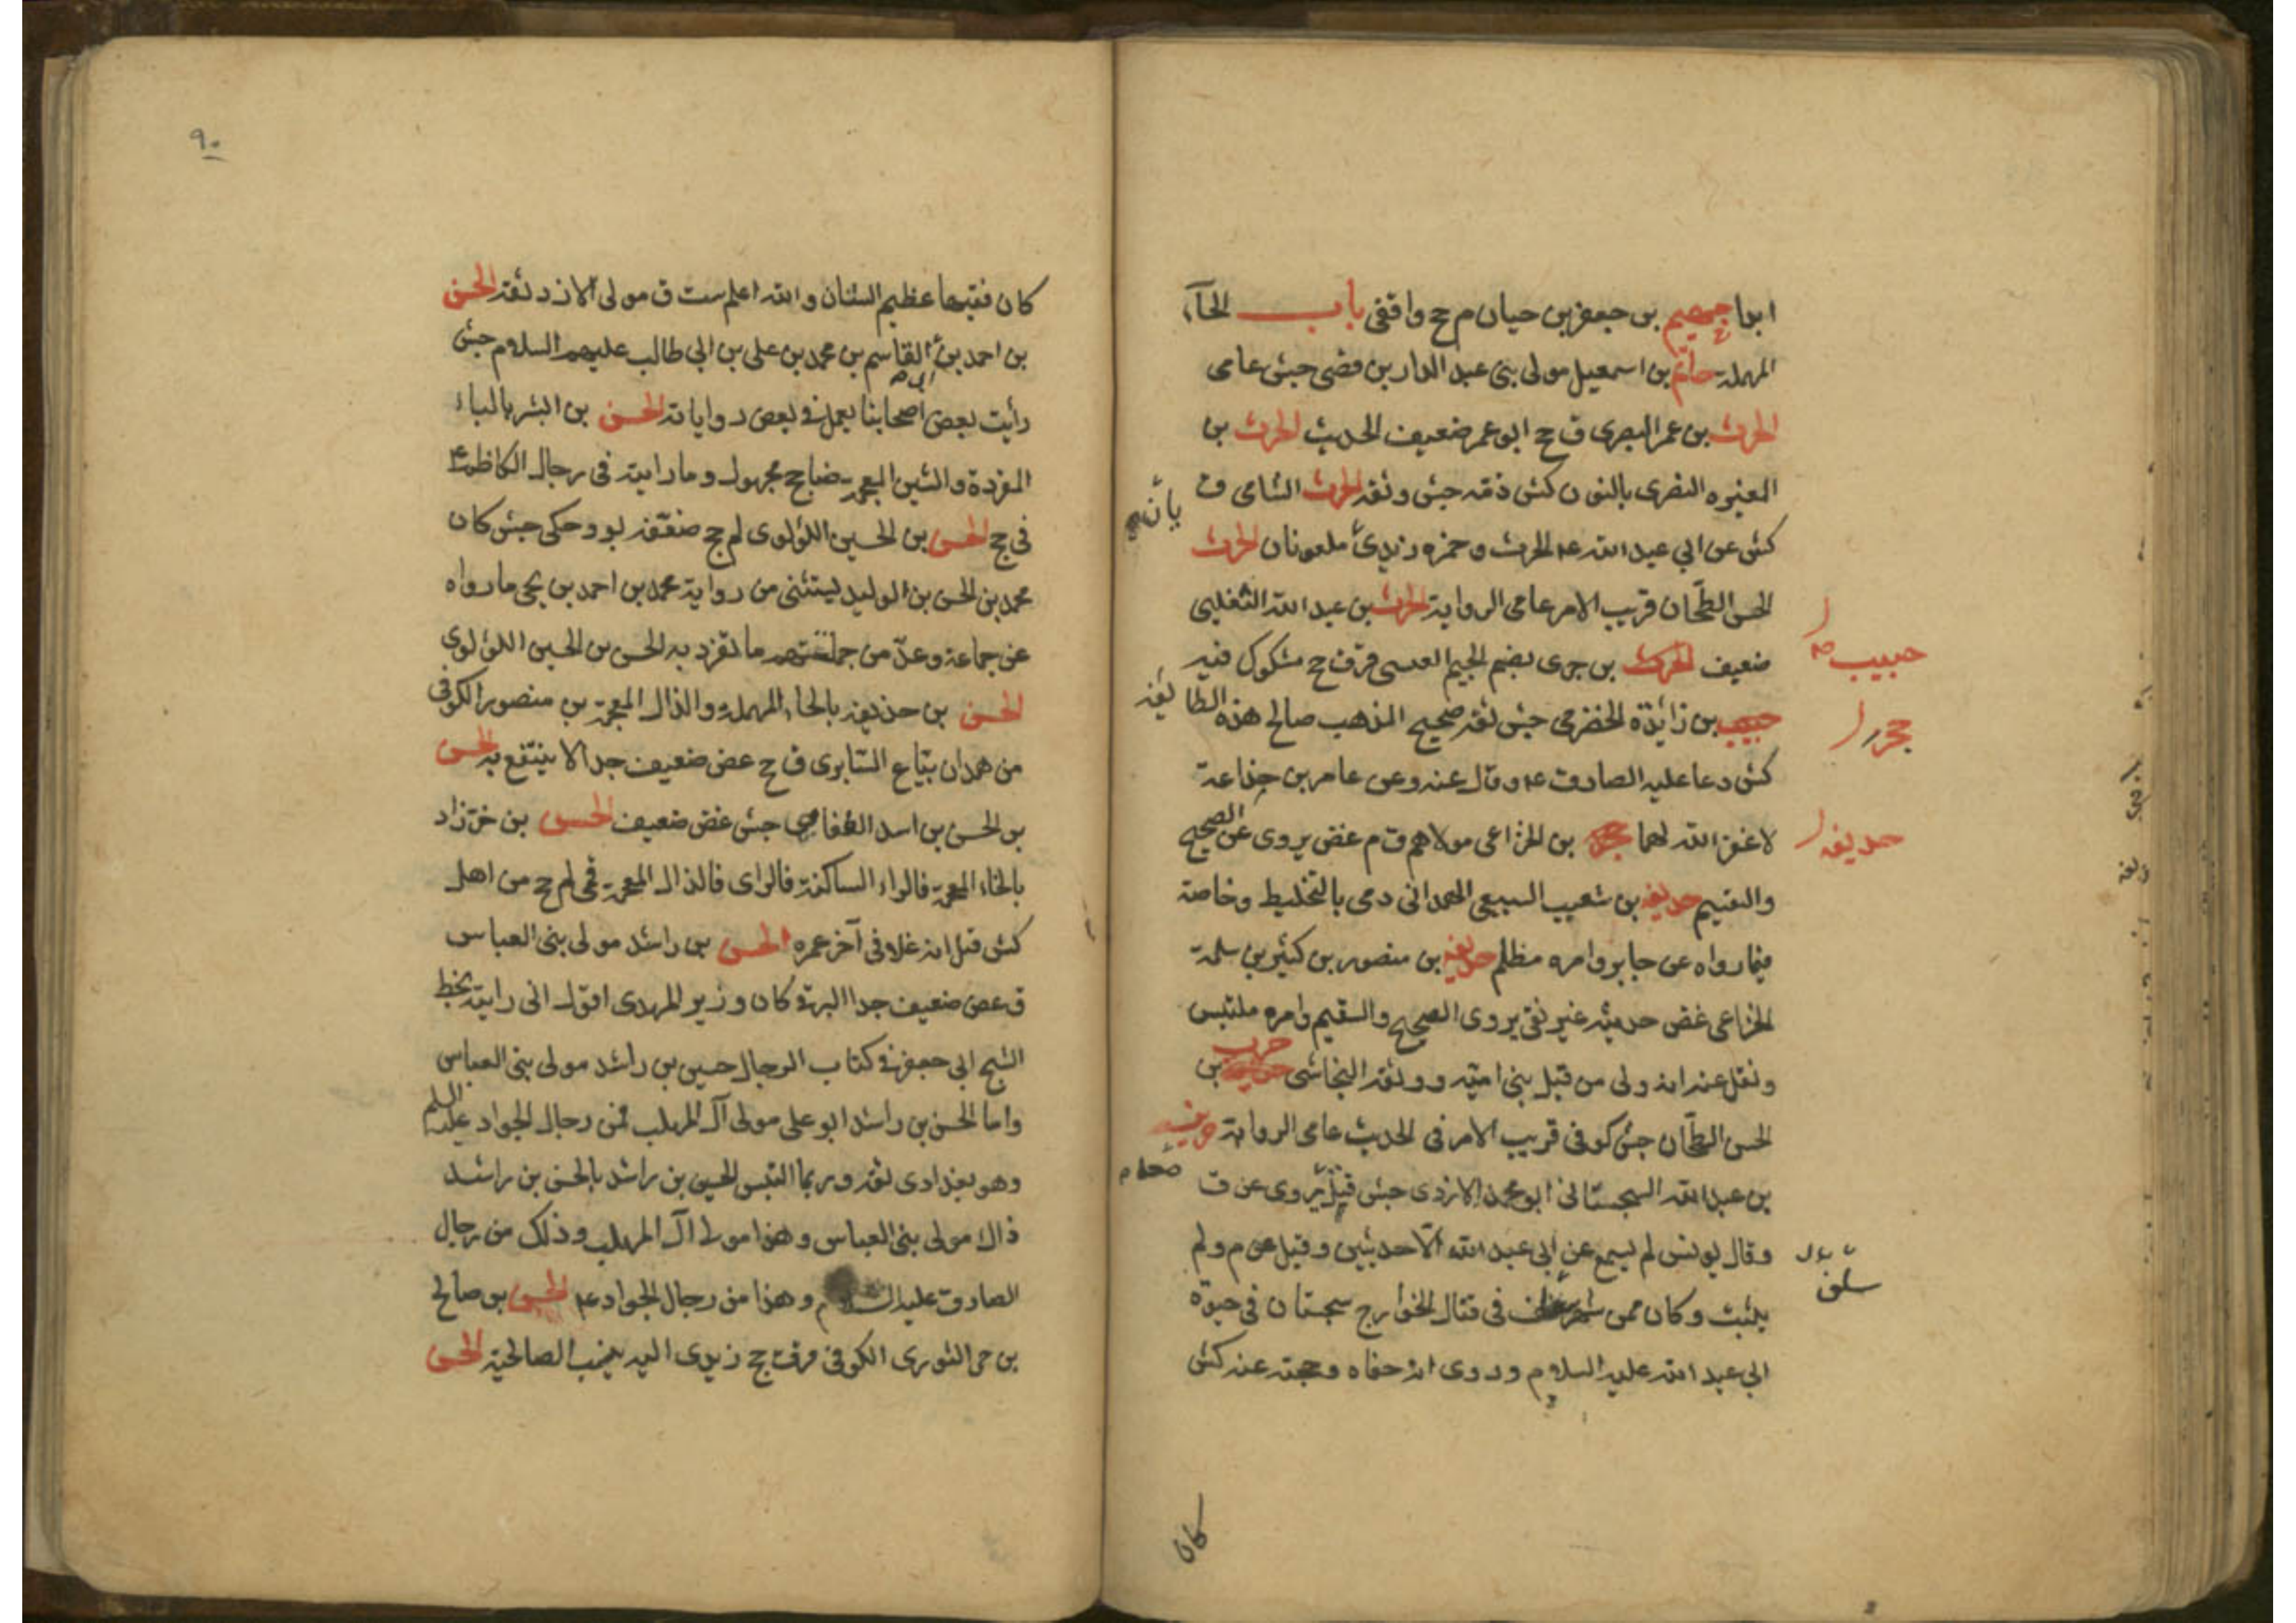 ابوا جهيم بن جعفر بن حيان م جح واقفي باب الحآء
المهملة حاتم بن اسمعيل مولى بنى عبد الدار بن قصى جش عامى
الحرث بن عمر البصرى ق جح ابو عمر ضعيف الحديث الحرث بن
المغيره النصرى بالنون كش ذمه جش وثقه الحرث الشامى ق
كش عن ابي عبد الله ع الحرث وحمزه زيدى ملعونان الحرث
الحسن الطحان قريب الامر عامى الرواية الحرث بن عبد الله الثغلبى
ضعيف الحرث بن جرى بضم الجيم العبسى قر ق جح مشكوك فيه
حبيب
حبيب بن زائدة الخضرمى جش ثقة صحيح المذهب صالح هذه الطائفة
حجر
كش دعا عليه الصادق ع وقال عنه وعن عامر بن جذاعة
لا غفر الله لهما حجر بن الخزاعى مولاهم ق م غض يروى عن الصحيح
حذيفه
والسقيم حذيفه بن شعيب السبيعى الهمدانى رمى بالتخليط وخاصة
فيما رواه عن جابر وامره مظلم حذيفه بن منصور بن كثير بن سلمة
الخزاعى غض حديثه غير نقى يروى الصحيح والسقيم وامره ملتبس
ونقل عنه انه ولى من قبل بنى امية ووثقه النجاشى حرب بن
الحسن الطحان جش كوفى قريب الامر فى الحديث عامى الرواية
بن عبد الله السجستانى ابو محمد الازدى جش قيل يروى عن ق
وقال يونس لم يسمع عن ابي عبد الله الا حديثين وقيل عن م ولم
يثبت وكان ممن شهر السيف فى قتال الخوارج سجستان فى حيوة
ابي عبد الله عليه السلام وروى انه جفاه وحجبه عنه كش
كان
٩٠
كان فقيها عظيم الشان والله اعلم ست ق مولى الازد ثقة الحسن
بن احمد بن القاسم بن محمد بن على بن ابي طالب عليهم السلام جش
رأيت بعض اصحابنا يعمل فى بعض رواياته الحسن بن البشر بالباء
المفردة والشين المعجمة ضا جح مجهول وما رايته فى رجال الكاظم ع
فى جح الحسن بن الحسين اللؤلوى لم جح ضعفه بو وحكى جش كان
محمد بن الحسن بن الوليد يستثنى من رواية محمد بن احمد بن يحيى ما رواه
عن جماعة وعد من جملتهم ما تفرد به الحسن بن الحسين اللؤلوى
الحسن بن حذيفه بالحاء المهملة والذال المعجمة بن منصور الكوفى
من همدان بياع السابرى ق جح غض ضعيف جدا لا ينتفع به الحسن
بن الحسن بن اسد الطفاوى جش غض ضعيف الحسن بن خرزاد
بالخاء المعجمة فالراء الساكنة فالزاى فالذال المعجمة قمى لم جح من اهل
كش قيل انه غلا فى آخر عمره الحسن بن راشد مولى بنى العباس
ق غض ضعيف جدا البرقى كان وزير المهدى اقول انى رايته بخط
الشيخ ابى جعفر فى كتاب الرجال حسين بن راشد مولى بنى العباس
واما الحسن بن راشد ابو على مولى آل المهلب فمن رجال الجواد عليه السلم
وهو بغدادى ثقة وربما التبس الحسين بن راشد بالحسن بن راشد
ذاك مولى بنى العباس وهذا مولى آل المهلب وذلك من رجال
الصادق عليه السلام وهذا من رجال الجواد ع الحسن بن صالح
بن حى الثورى الكوفى قر ق جح زيدى اليه ينسب الصالحية الحسن